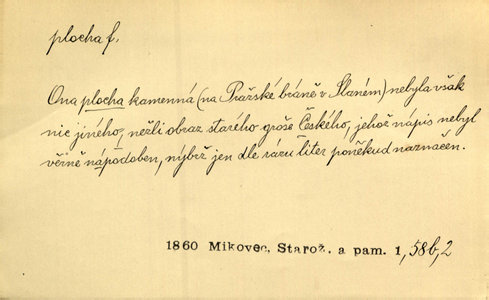 plocha f.
Ona plocha kamenná (na Pražské bráně v Slaném) nebyla však
nic jiného, nežli obraz starého groše Českého, jehož nápis nebyl
věrně nápodoben, nýbrž jen dle rázu liter poněkud naznačen.
1860 Mikovec, Starož. a pam. 1, 58b, 2